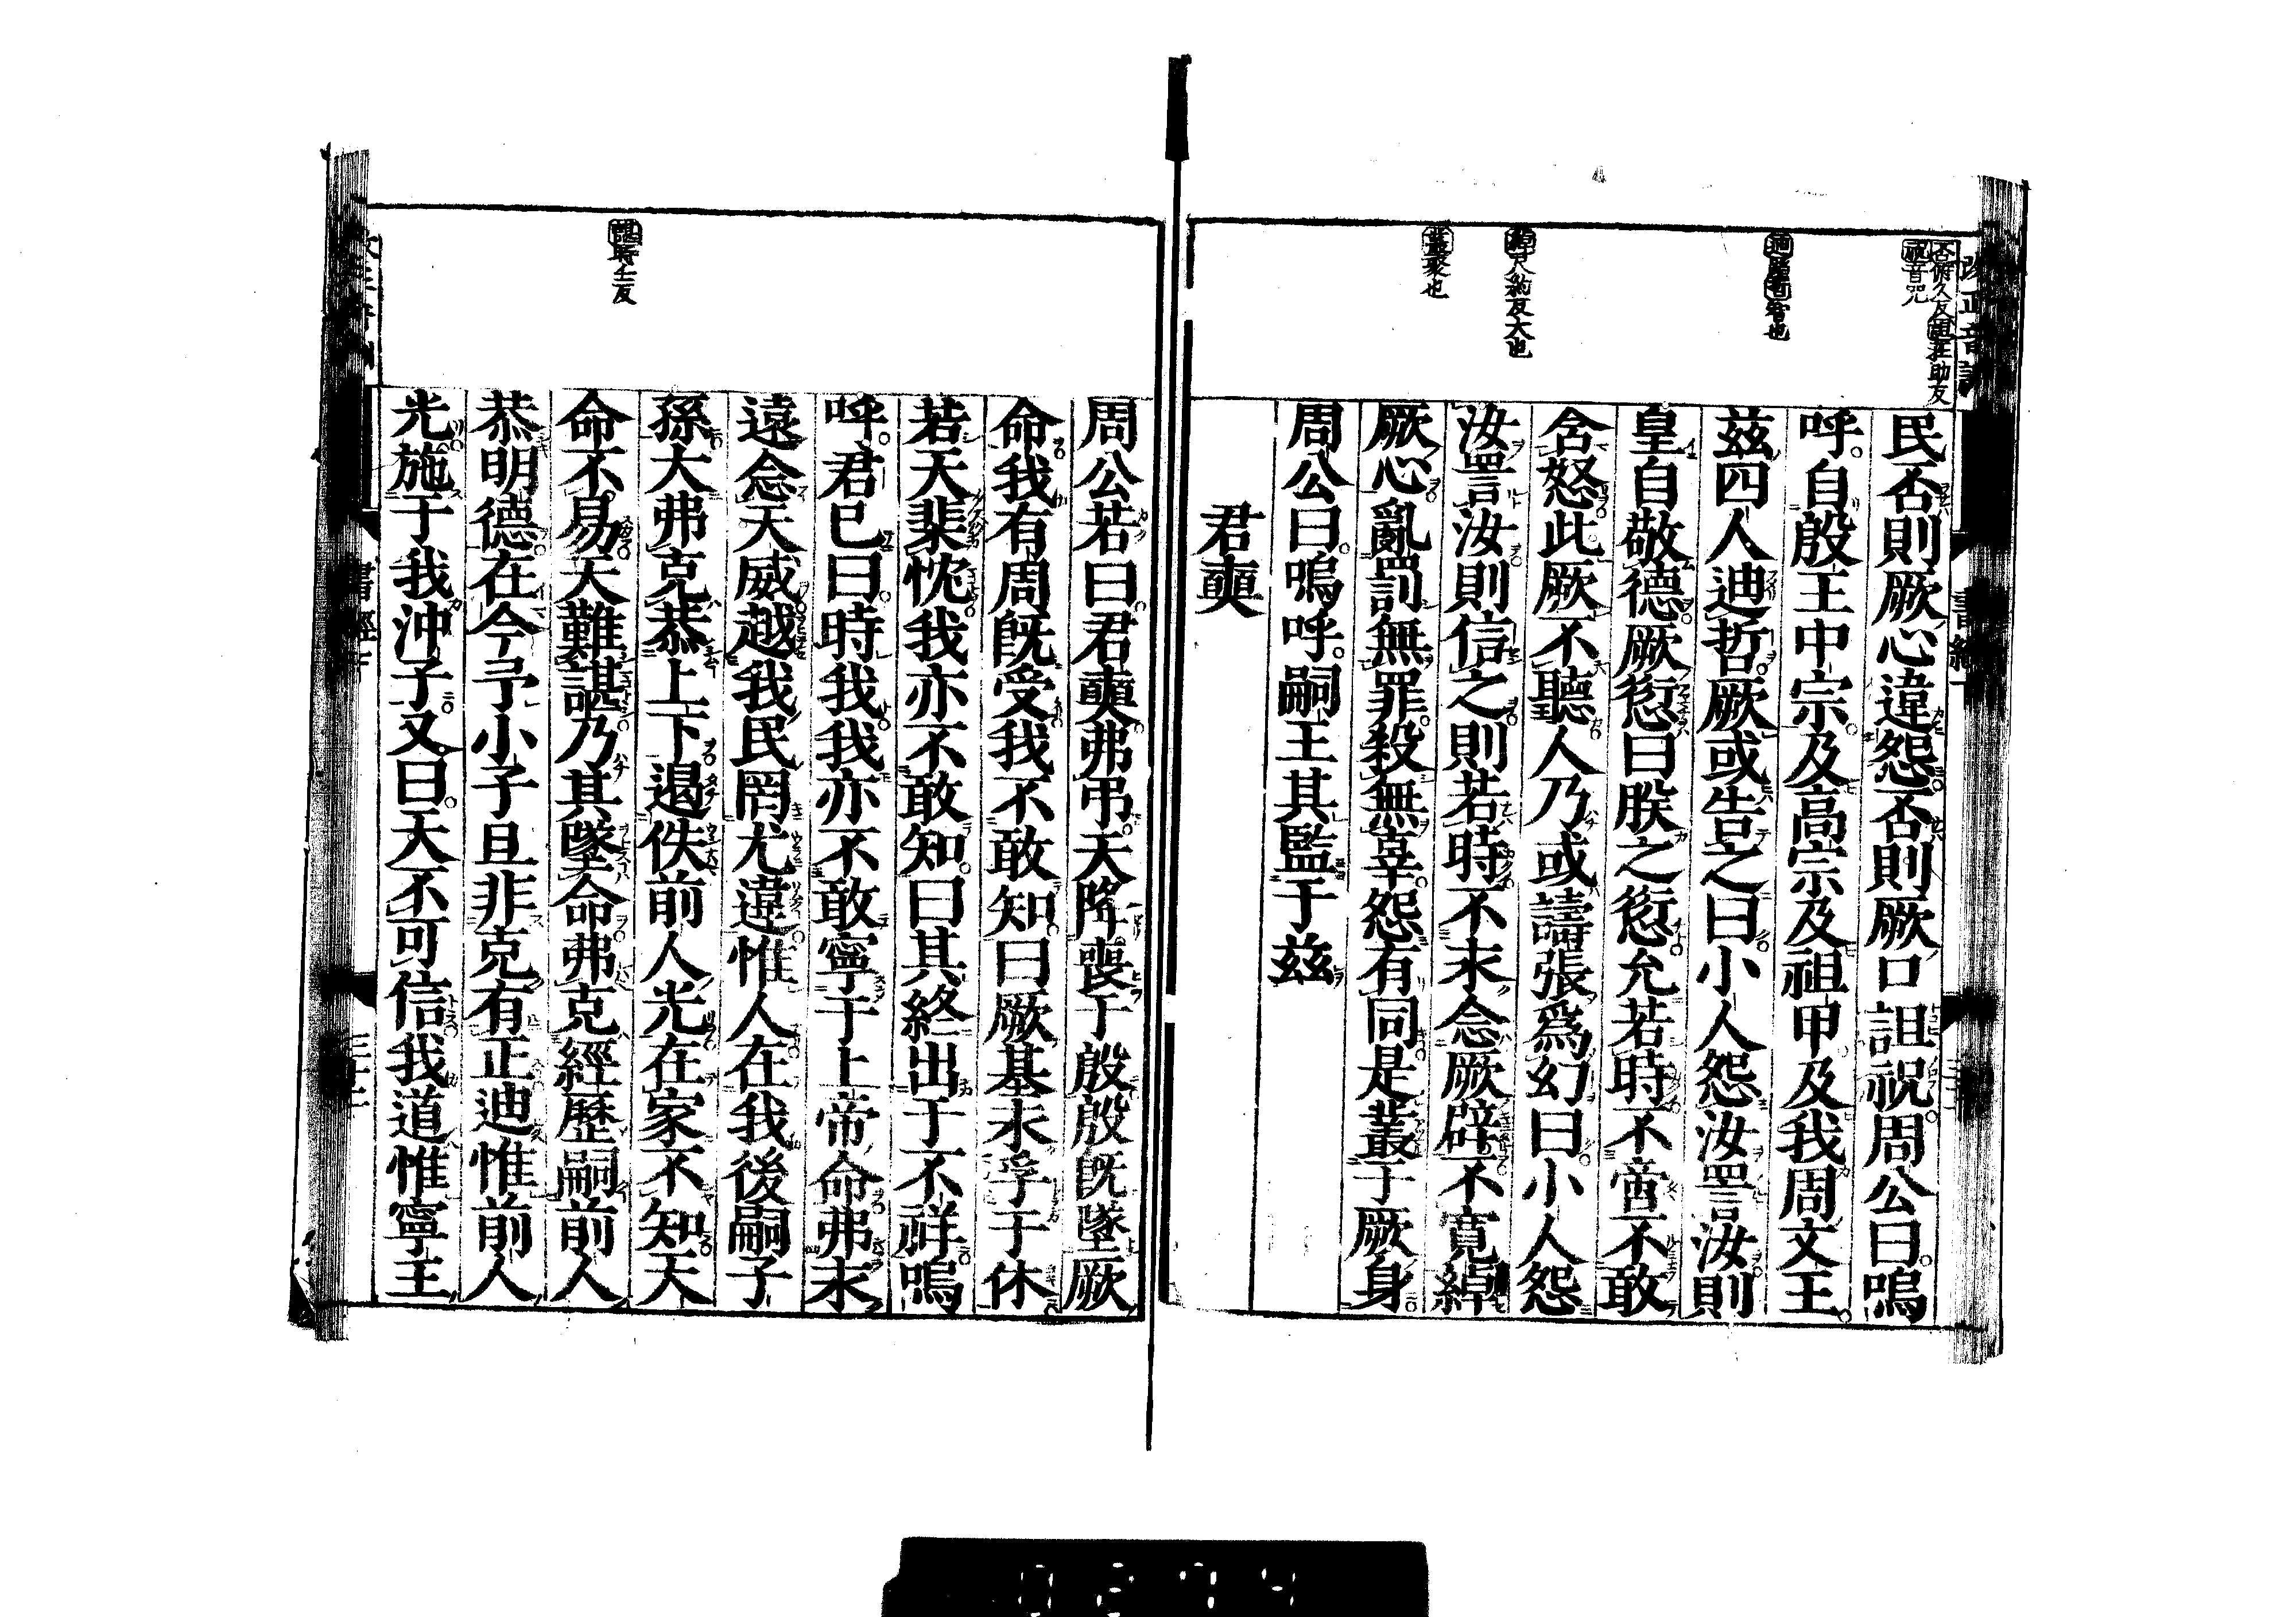 否俯久反詛莊助反
祝音呪
民否則厥心違怨否則厥口詛祝周公曰嗚
呼自殷王中宗及高宗及祖甲及我周文王
茲四人迪哲厥或告之曰小人怨汝詈汝則
皇自敬德厥愆曰朕之愆允若時不啻不敢
含怒此厥不聽人乃或譸張爲幻曰小人怨
汝詈汝則信之則若時不永念厥辟不寬綽
厥心亂罰無罪殺無辜怨有同是叢于厥身
周公曰嗚呼嗣王其監于茲
君奭
迪蹈哲智也
綽尺約反大也
叢聚也
周公若曰君奭弗弔天降喪于殷殷旣墜厥
命我有周旣受我不敢知曰厥基永孚于休
若天棐忱我亦不敢知曰其終出于不祥嗚
呼君已曰時我我亦不敢寧于上帝命弗永
遠念天威越我民罔尤違惟人在我後嗣子
孫大弗克恭上下遏佚前人光在家不知天
命不易天難諶乃其墜命弗克經歷嗣前人
恭明德在今予小子旦非克有正迪惟前人
光施于我沖子又曰天不可信我道惟寧王
諶時壬反
書經下
0274